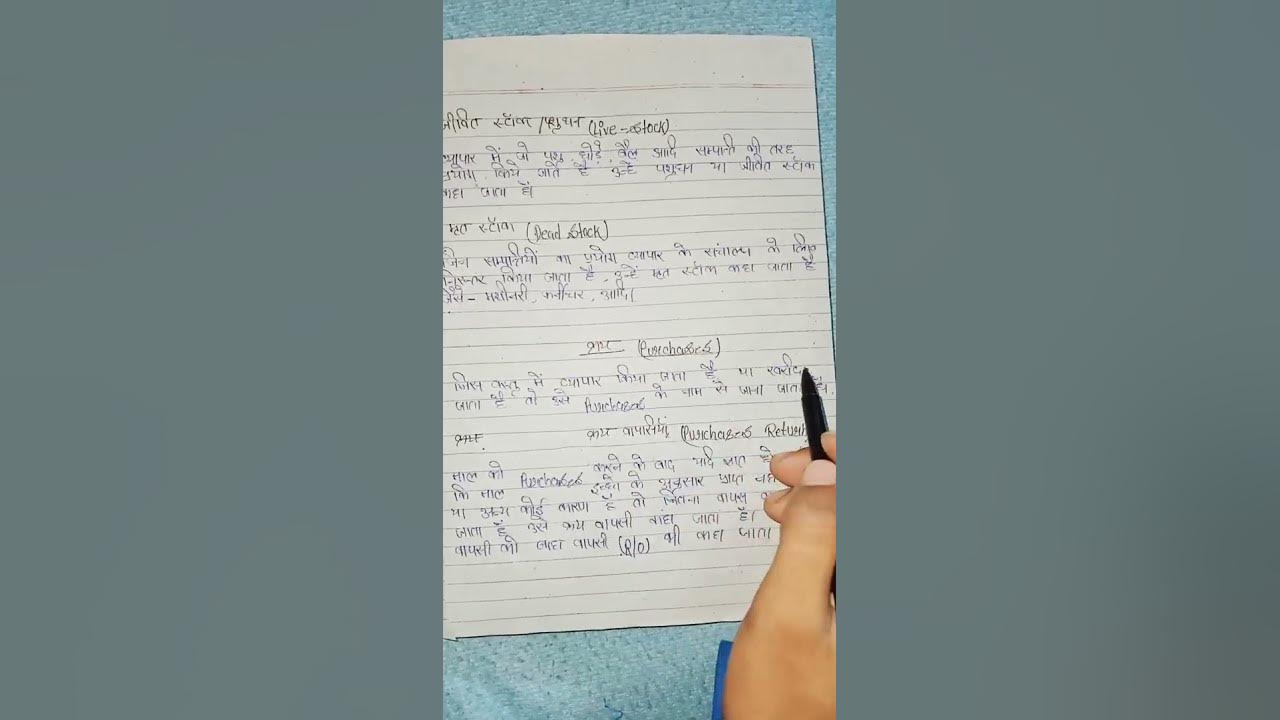 जीवित स्टॉक/पशुधन (Live-stock)
व्यापार में जो पशु, घोड़े, बैल आदि सम्पत्ति की तरह
उपयोग किये जाते है उन्हे पशुधन या जीवित स्टॉक
कहा जाता है।
मृत स्टॉक (Dead stock)
जिन सम्पत्तियों का प्रयोग व्यापार के संचालन के लिए
किया जाता है, उन्हें मृत स्टॉक कहा जाता है
जैसे - मशीनरी, फर्नीचर, आदि।
क्रय (Purchases)
जिस वस्तु में व्यापार किया जाता है या खरीदा
जाता है तो इसे Purchases के नाम से जाना जाता है।
क्रय वापसियां (Purchases Return
माल को Purchases करने के बाद यदि ज्ञात हो
कि माल इच्छा के अनुसार प्राप्त नहीं
या अन्य कोई कारण है तो जितना वापस
जाता है उसे क्रय वापसी कहा जाता है।
वापसी को बाह्य वापसी (R/O) भी कहा जाता